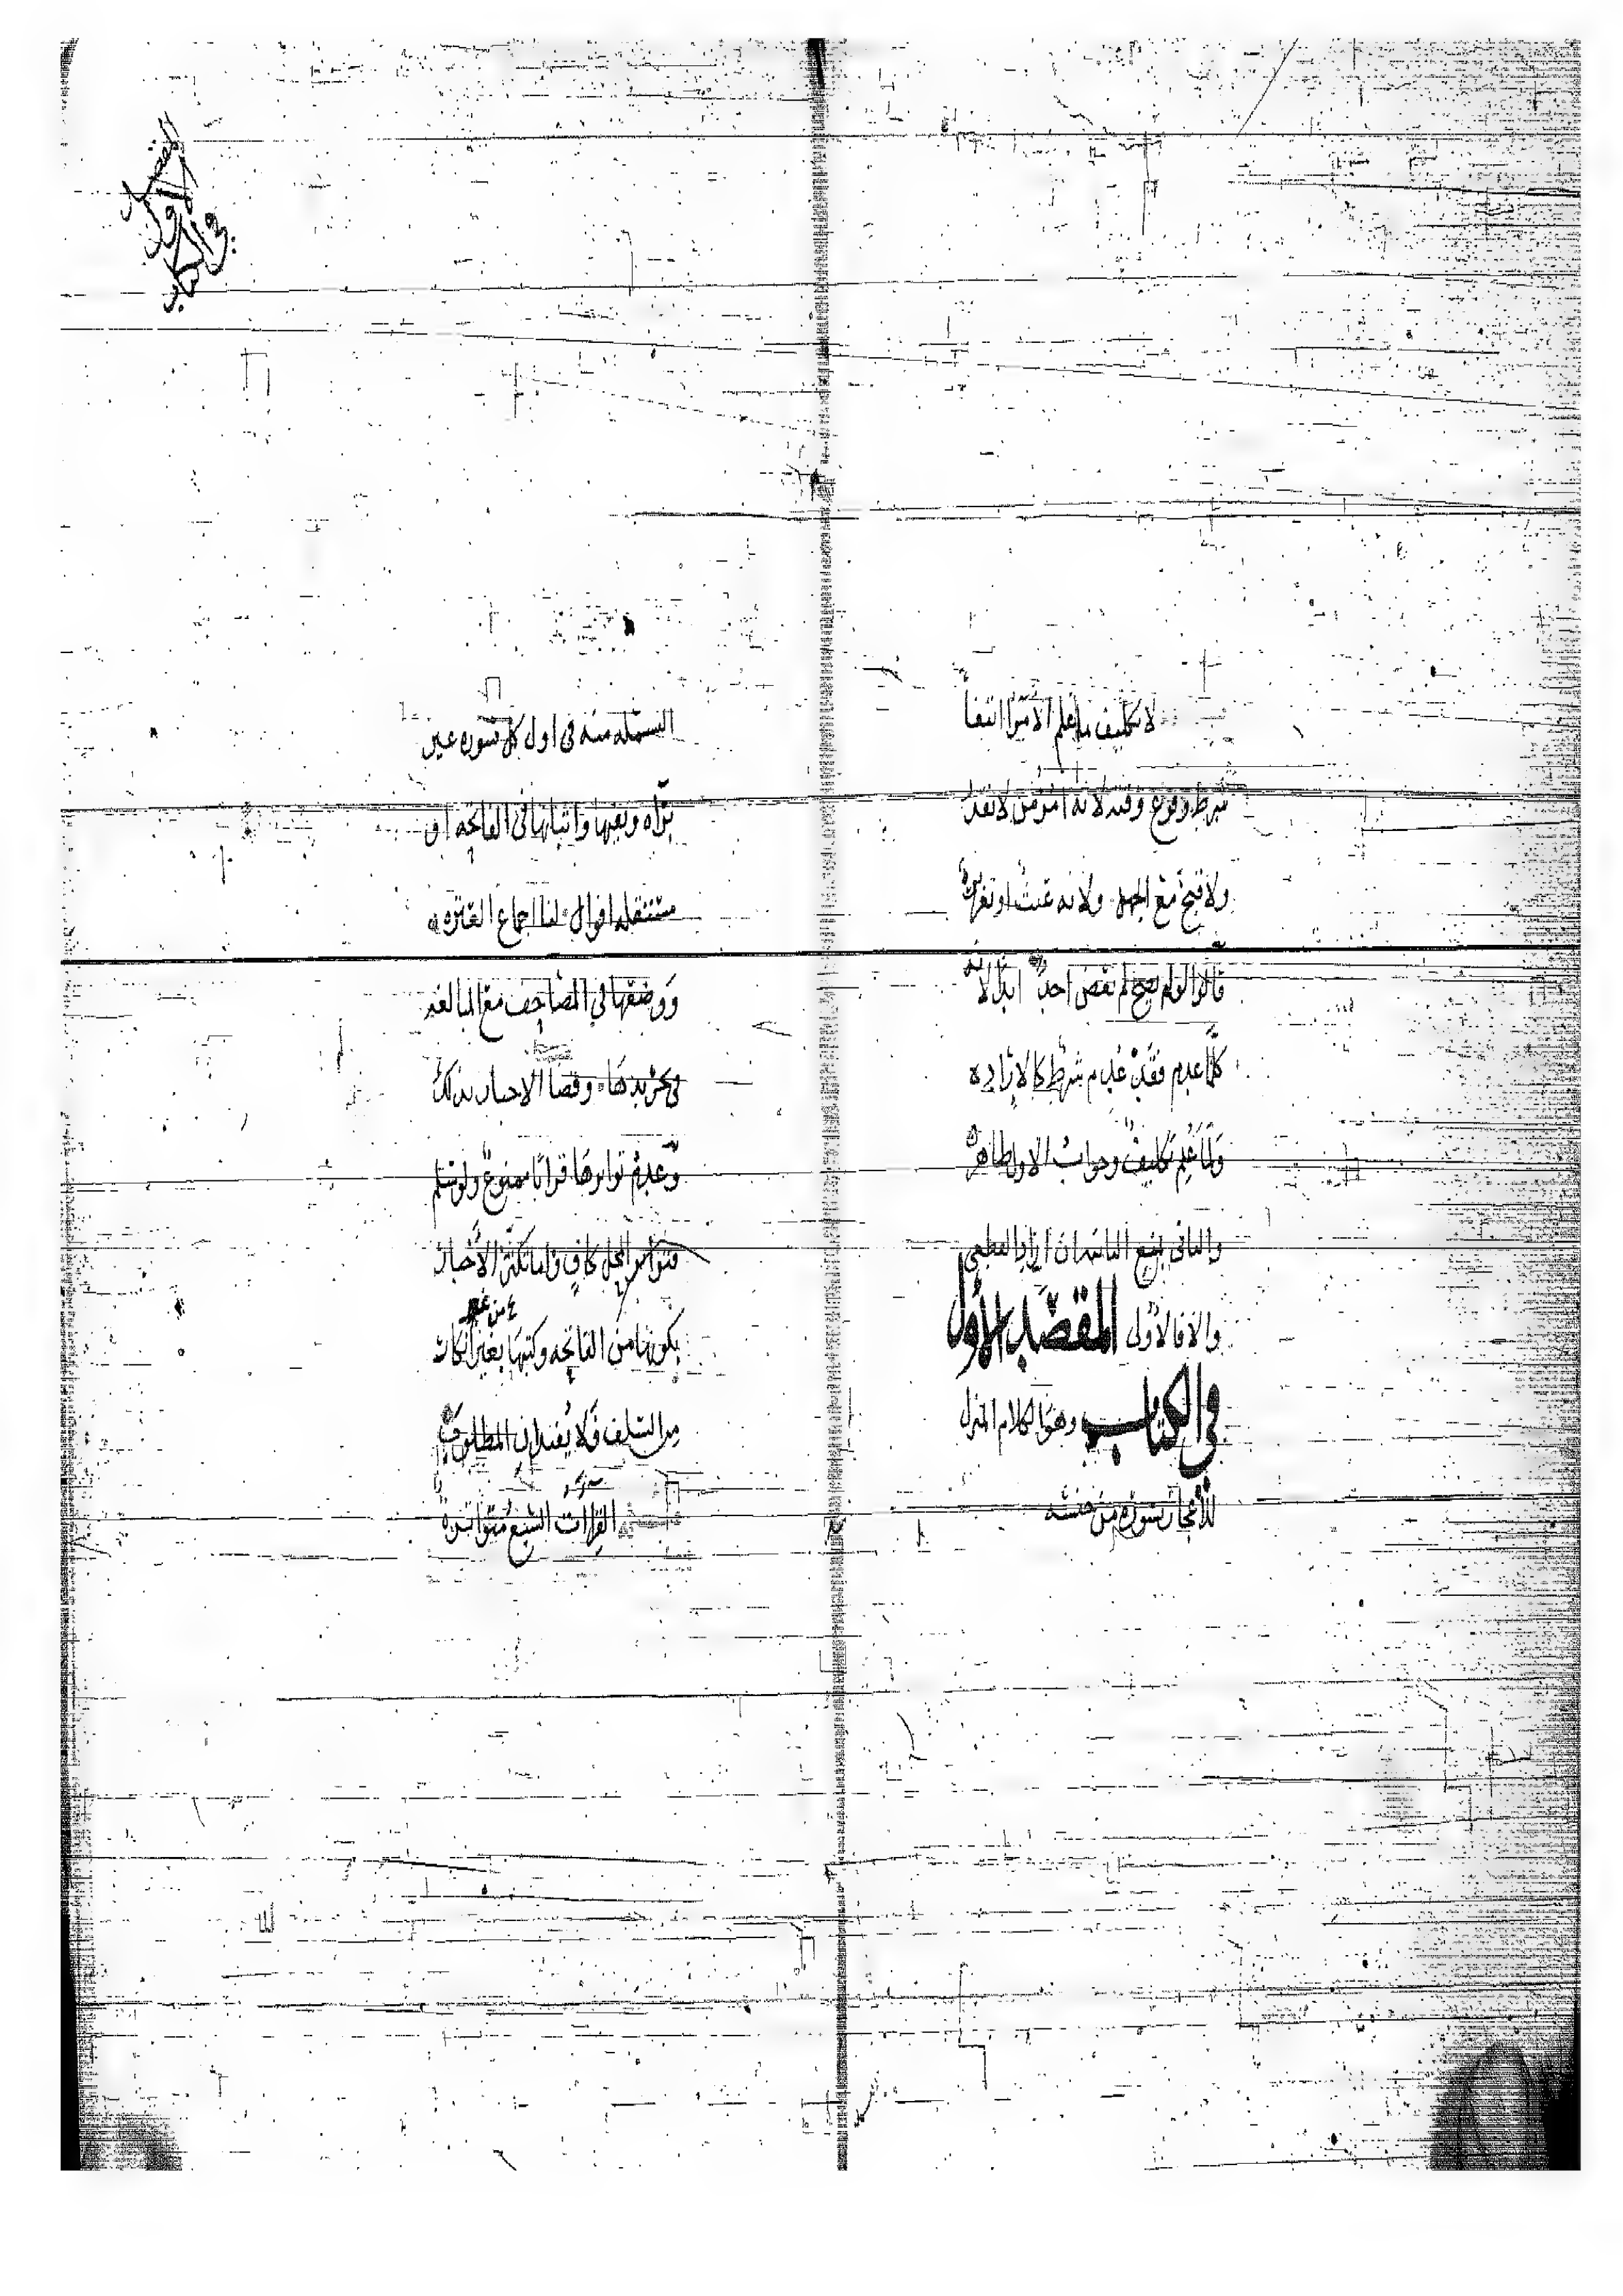 لا تكليف ما علم الآمر انتفأ
شرط وقوع وقته لانه امر من لا تعذر
ولا قبح مع الجهل ولانه عبث او تغرير
قالوا لو لم يصح لم يعص احد ابدا لانه
كلما عدم فقد عدم شرط كالارادة
ولما علم تكليف وجواب الاول ظاهر
والثاني يمنع الثانيه ان اريد القطعي
والا فالاولى المقصد الاول
في الكتاب وهو الكلام المنزل
للاعجاز بسورة من جنسه
البسمله منه في اول كل سوره غير
برآه ونفيها واثباتها في الفاتحه او
مستقله اقوال لنا اجماع العتره
ووضعها في المصاحف مع المبالغه
في تجريدها وقضا الاخبار بذلك
وعدم تواترها قرآنا ممنوع ولو سلم
فتواتر المحل كاف واما تكثر الاخبار
بكونها من الفاتحه وكتبها بغير انكار
من السلف فلا يفيدان المطلوب
القراات السبع متواترة
المقصد
الاول
في الكتاب